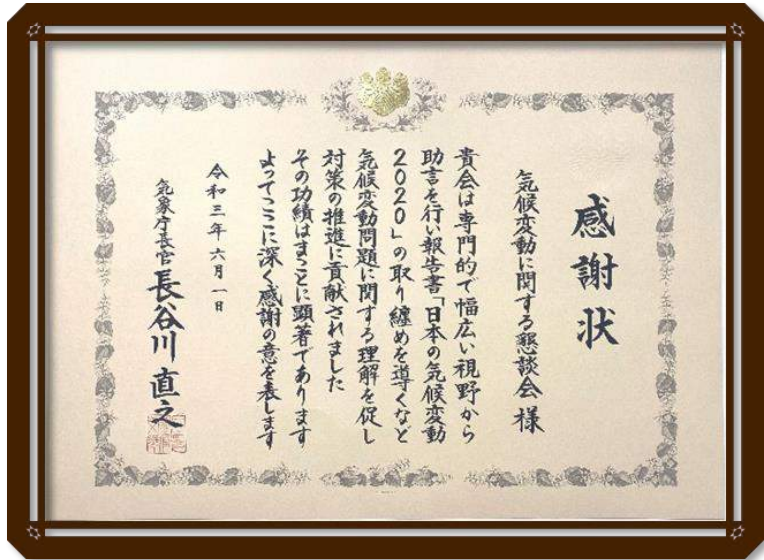 感謝状
気候変動に関する懇談会様
貴会は専門的で幅広い視野から
助言を行い報告書「日本の気候変動
2020」の取り纏めを導くなど
気候変動問題に関する理解を促し
対策の推進に貢献されました
その功績はまことに顕著であります
よってここに深く感謝の意を表します
令和三年六月一日
気象庁長官 長谷川直之